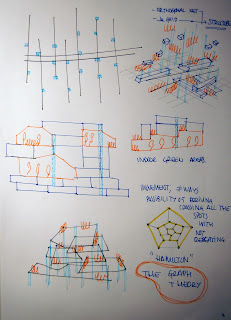 - ORTHOGONAL NET
↳ GRID
→ STRUCTURE
INDOOR GREEN AREAS
MOVEMENT, # WAYS
POSSIBILITY OF RUNNING
CROSSING ALL THE
SPOTS
WITH
NOT
REPEATING
"HAMILTON"
THE GRAPH
THEORY